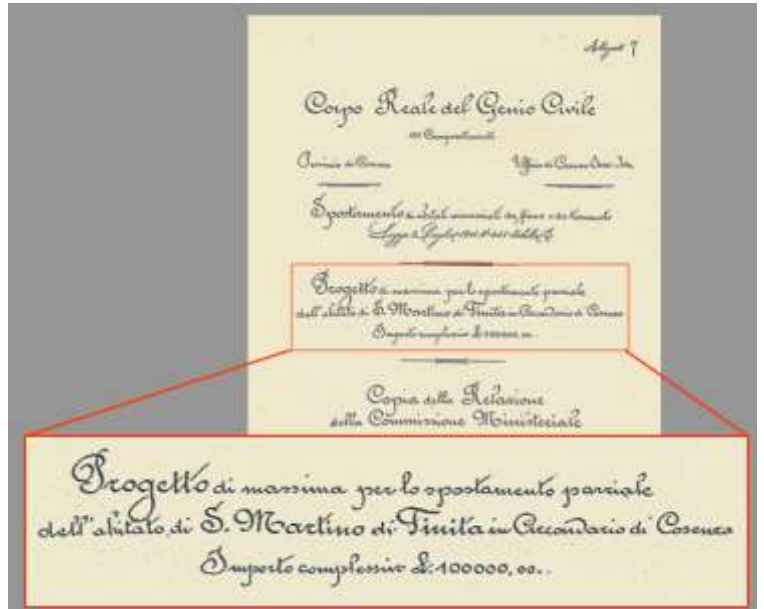 Allegato 7
Corpo Reale del Genio Civile
Compartimento
Provincia di Cosenza
Ufficio di Cosenza
Spostamento di abitati minacciati da frane
Legge 2 Luglio
Progetto di massima per lo spostamento parziale
dell'abitato di S. Martino di Finita in Circondario di Cosenza
Importo complessivo £. 100000,00.
Copia della Relazione
della Commissione Ministeriale
Progetto di massima per lo spostamento parziale
dell'abitato di S. Martino di Finita in Circondario di Cosenza
Importo complessivo £. 100000,00..